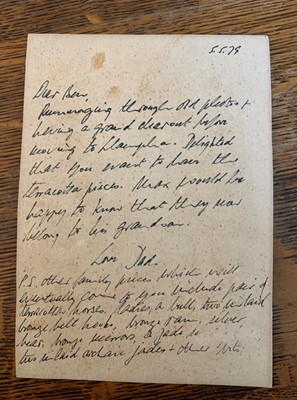 5.5.79
Dear Ben,
Rummaging through old photos +
having a grand clearout before
moving to
that you want to have the
terracotta pieces. Max would be
happy to know that they now
belong to his grandson.
Love Dad.
P.S. other family pieces which will
eventually come to you include pair of
terracotta horses, ladies, a bull, two inlaid
bronze belt hooks, bronze ram, silver
bear, bronze mirrors, & jade
two inlaid archaic jades + other